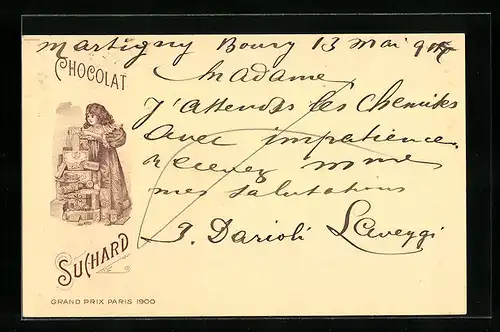 Martigny Bourg 13 Mai
CHOCOLAT
Madame
J'attends les chemises
avec impatience.
recevez mme
mes salutations
J. Darioli Laveggi
SUCHARD
GRAND PRIX PARIS 1900